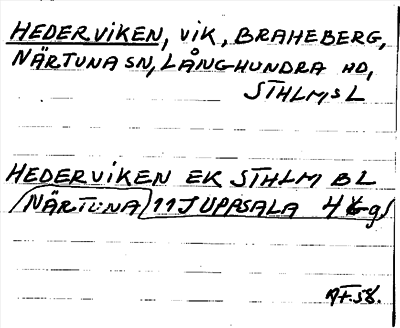 HEDERVIKEN, VIK, BRAHEBERG,
NÄRTUNA SN, LÅNGHUNDRA HD,
STHLMS L
HEDERVIKEN EK STHLM BL
NÄRTUNA 11J UPPSALA 4